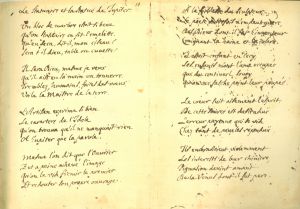 Le Statuaire et la Statue de Jupiter.
Un bloc de marbre étoit si beau
Qu'un Statuaire en fit l'emplette.
Qu'en fera, dit-il, mon ciseau?
Sera-t-il Dieu, table ou cuvette?
Il sera Dieu, mesme je veux
Qu'il ait en sa main un tonnerre.
Tremblez, humains, faites des voeux
Voila le Maistre de la terre.
L'artisan exprima si bien
Le caractere de l'Idole,
Qu'on trouva qu'il ne manquoit rien
A Jupiter que la parole.
Mesme l'on dit que l'ouvrier
Eut a peine achevé l'image
Qu'on le vid fremir le premier
Et redouter son propre ouvrage.
A la du Sculpteur
Le poete autrefois n'en dut guere
Des Dieux dont il fut l'inventeur
Craignant la haine et la colere.
Il estoit enfant en cecy
Les enfants n'ont l'ame occupée
que du continuel soucy
qu'on ne fasche point leur poupée.
Le coeur suit aisement l'esprit
De cette source est descendue
L'erreur payenne qui se vid
Chez tant de peuples repandue
Ils embrassoient violemment
Les interests de leur chimere
Pigmalion devint amant
De la Venus dont il fut pere.